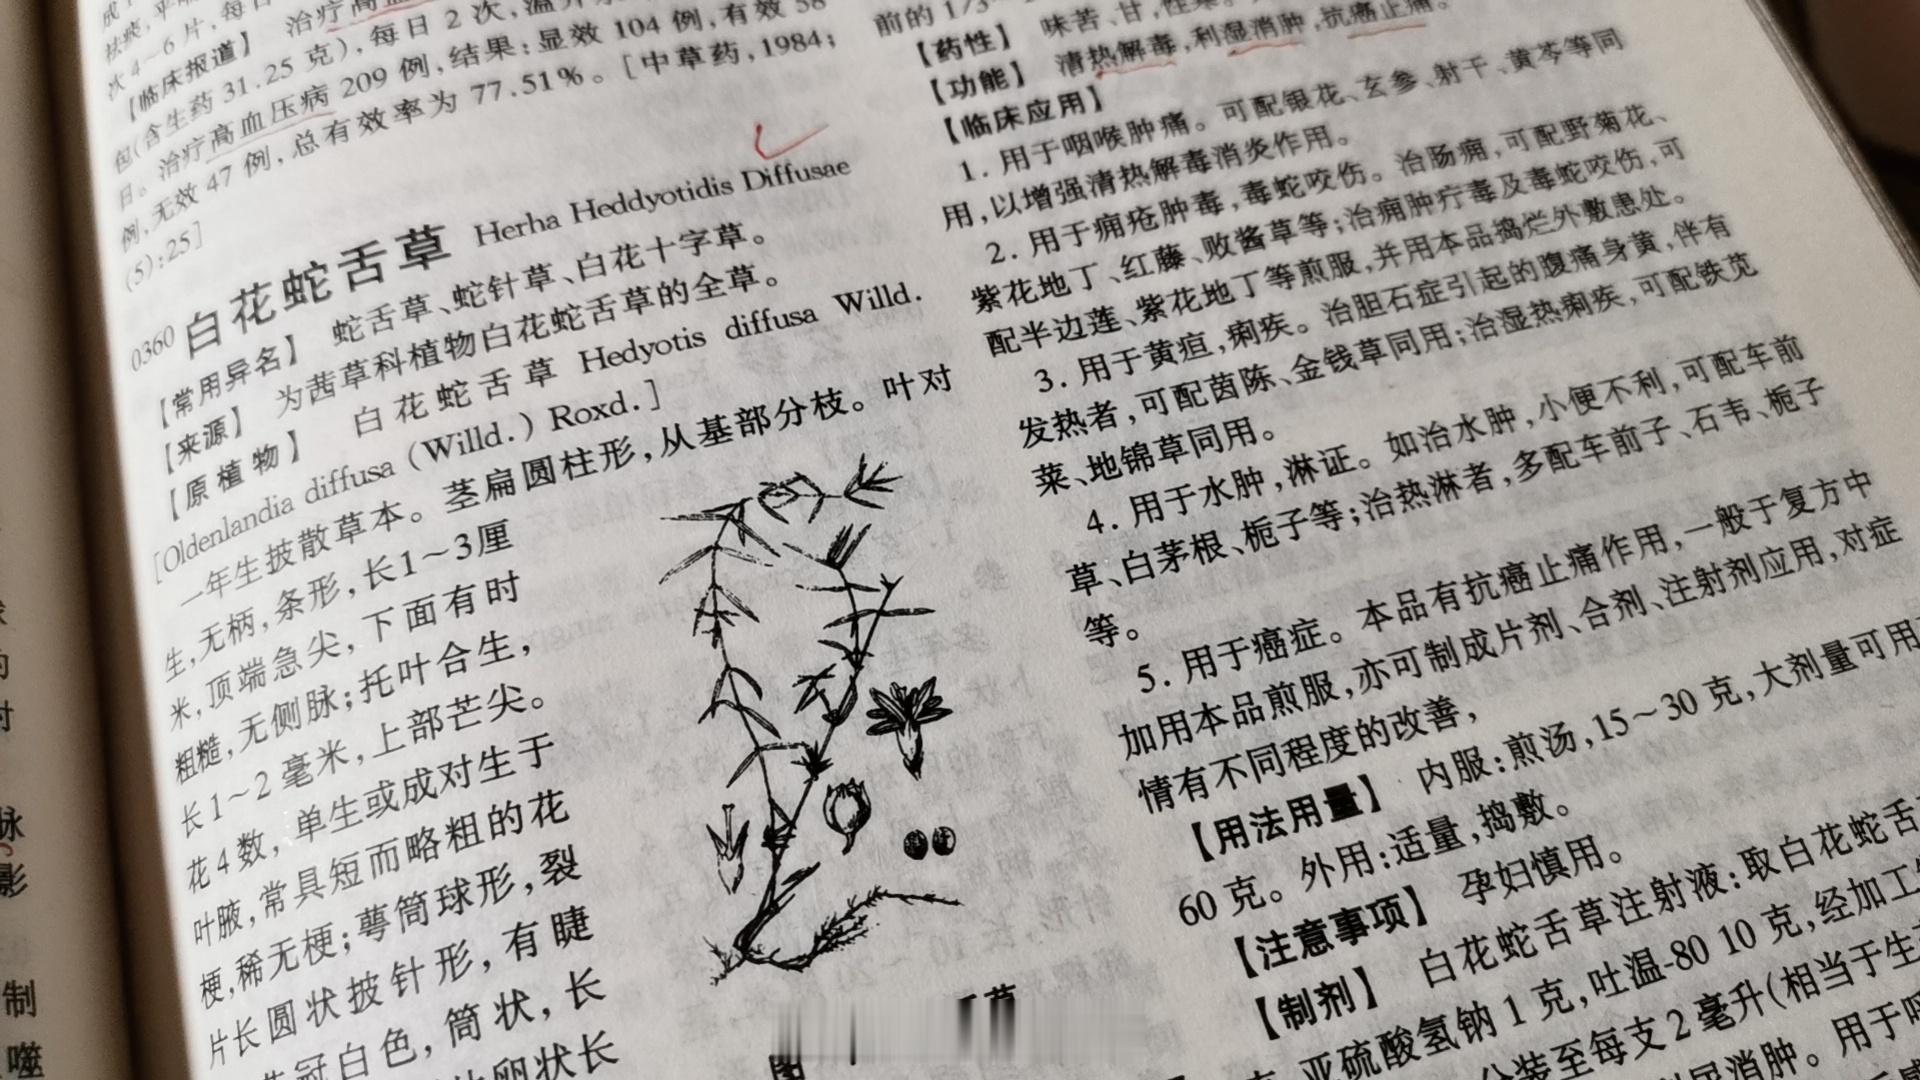 祛痰,平
次4~6片,每日
【临床报道】 治疗高血
包(含生药31.25克),每日2次,温开
日。治疗高血压病209例,结果:显效104例,有效58
例,无效47例,总有效率为77.51%。[中草药,1984;
(5):25]
0360 白花蛇舌草 Herha Heddyotidis Diffusae
【常用异名】 蛇舌草、蛇针草、白花十字草。
【来源】 为茜草科植物白花蛇舌草的全草。
【原植物】 白花蛇舌草 Hedyotis diffusa Willd.
[Oldenlandia diffusa (Willd.) Roxd.]
一年生披散草本。茎扁圆柱形,从基部分枝。叶对
生,无柄,条形,长1~3厘
米,顶端急尖,下面有时
粗糙,无侧脉;托叶合生,
长1~2毫米,上部芒尖。
花4数,单生或成对生于
叶腋,常具短而略粗的花
梗,稀无梗;萼筒球形,裂
片长圆状披针形,有睫
冠白色,筒状,长
卵状长
草
前的1/3
【药性】 味苦、甘,性寒。
【功能】 清热解毒,利湿消肿,抗癌止痛。
【临床应用】
1. 用于咽喉肿痛。可配银花、玄参、射干、黄芩等同
用,以增强清热解毒消炎作用。
2. 用于痈疮肿毒,毒蛇咬伤。治肠痈,可配野菊花、
紫花地丁、红藤、败酱草等;治痈肿疔毒及毒蛇咬伤,可
配半边莲、紫花地丁等煎服,并用本品捣烂外敷患处。
3. 用于黄疸,痢疾。治胆石症引起的腹痛身黄,伴有
发热者,可配茵陈、金钱草同用;治湿热痢疾,可配铁苋
菜、地锦草同用。
4. 用于水肿,淋证。如治水肿,小便不利,可配车前
草、白茅根、栀子等;治热淋者,多配车前子、石韦、栀子
等。
5. 用于癌症。本品有抗癌止痛作用,一般于复方中
加用本品煎服,亦可制成片剂、合剂、注射剂应用,对症
情有不同程度的改善,
【用法用量】 内服:煎汤,15~30克,大剂量可用
60克。外用:适量,捣敷。
【注意事项】 孕妇慎用。
【制剂】 白花蛇舌草注射液:取白花蛇舌
亚硫酸氢钠1克,吐温-80 10克,经加工
分装至每支2毫升(相当于生
尿消肿。用于呼